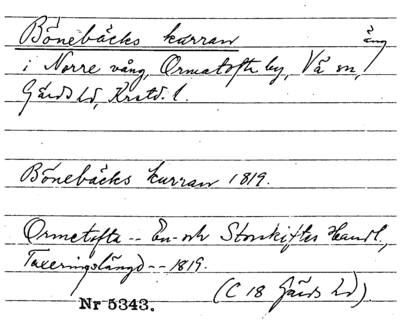 Bönebäcks kurran
äng
i Norre vång, Ormatofta by, Vä sn,
Gärds hd, Krstd. l.
Bönebäcks kurran 1819.
Ormetofta -- En- och Storskiftes Handl.,
Taxeringslängd -- 1819.
(C 18 Gärds hd).
Nr 5343.